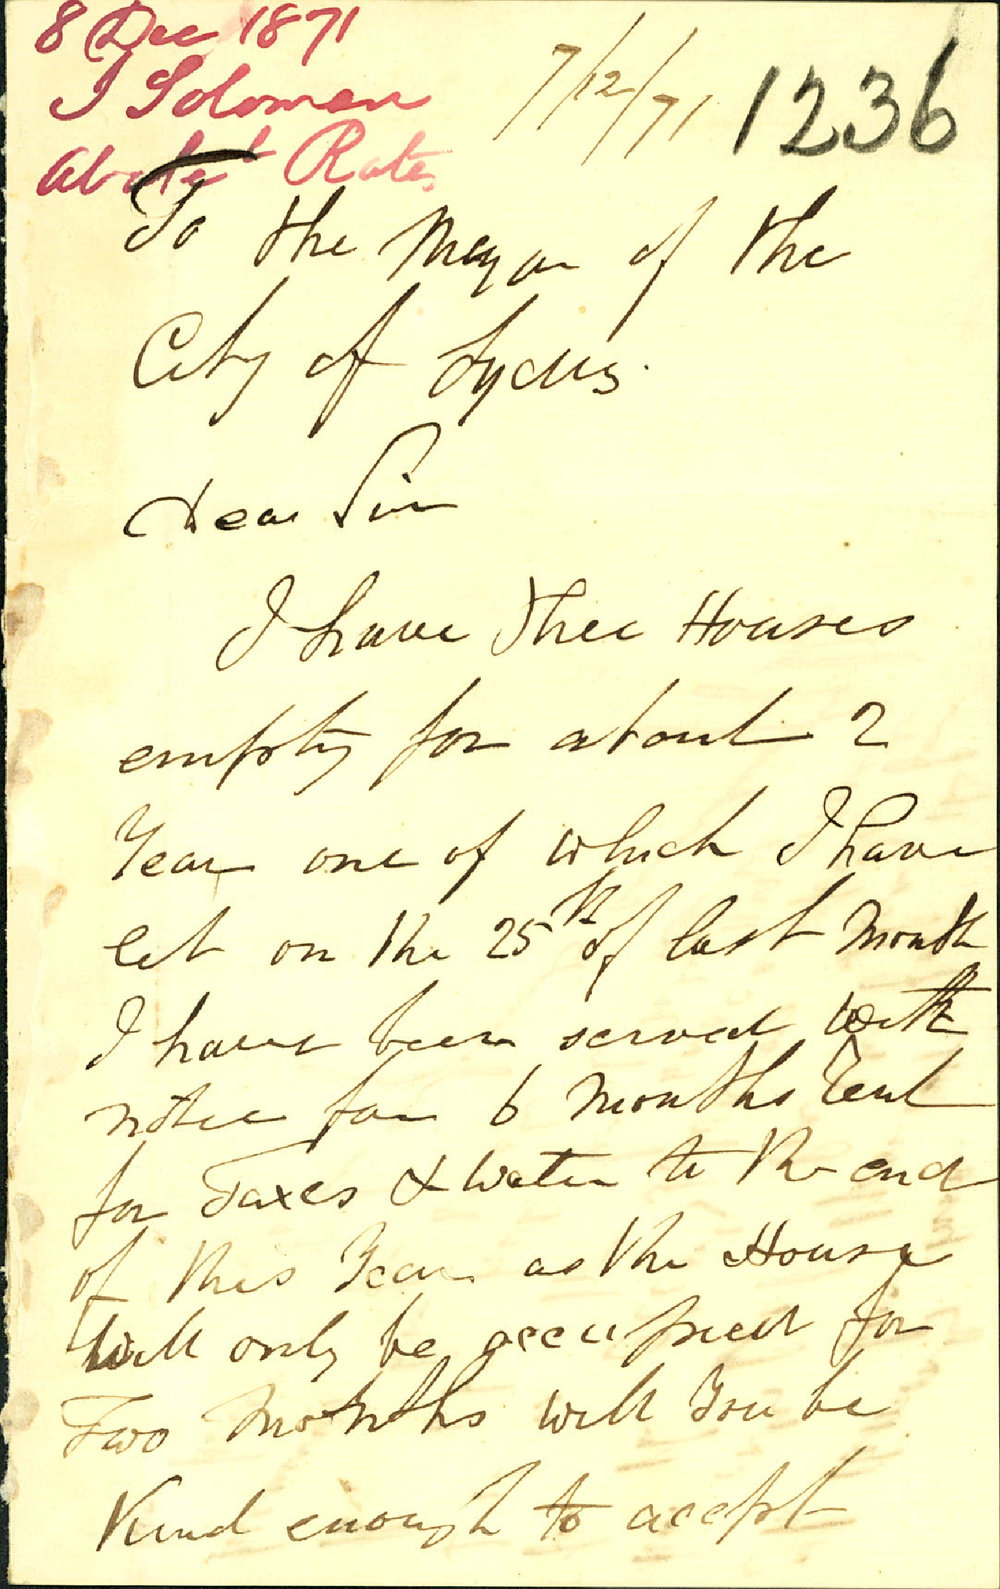 8 Dec 1871
I Solomon
Abate't Rates
7/12/71
1236
To the Mayor of the
City of Sydny.
Dear Sir
I have three Houses
empty for about 2
Year one of which I have
let on the 25th of last Month
I have been served with
notice for 6 Months Rent
for Taxes & Water to the end
of this Year as the House
will only be occupied for
Two Months will You be
Kind enough to accept